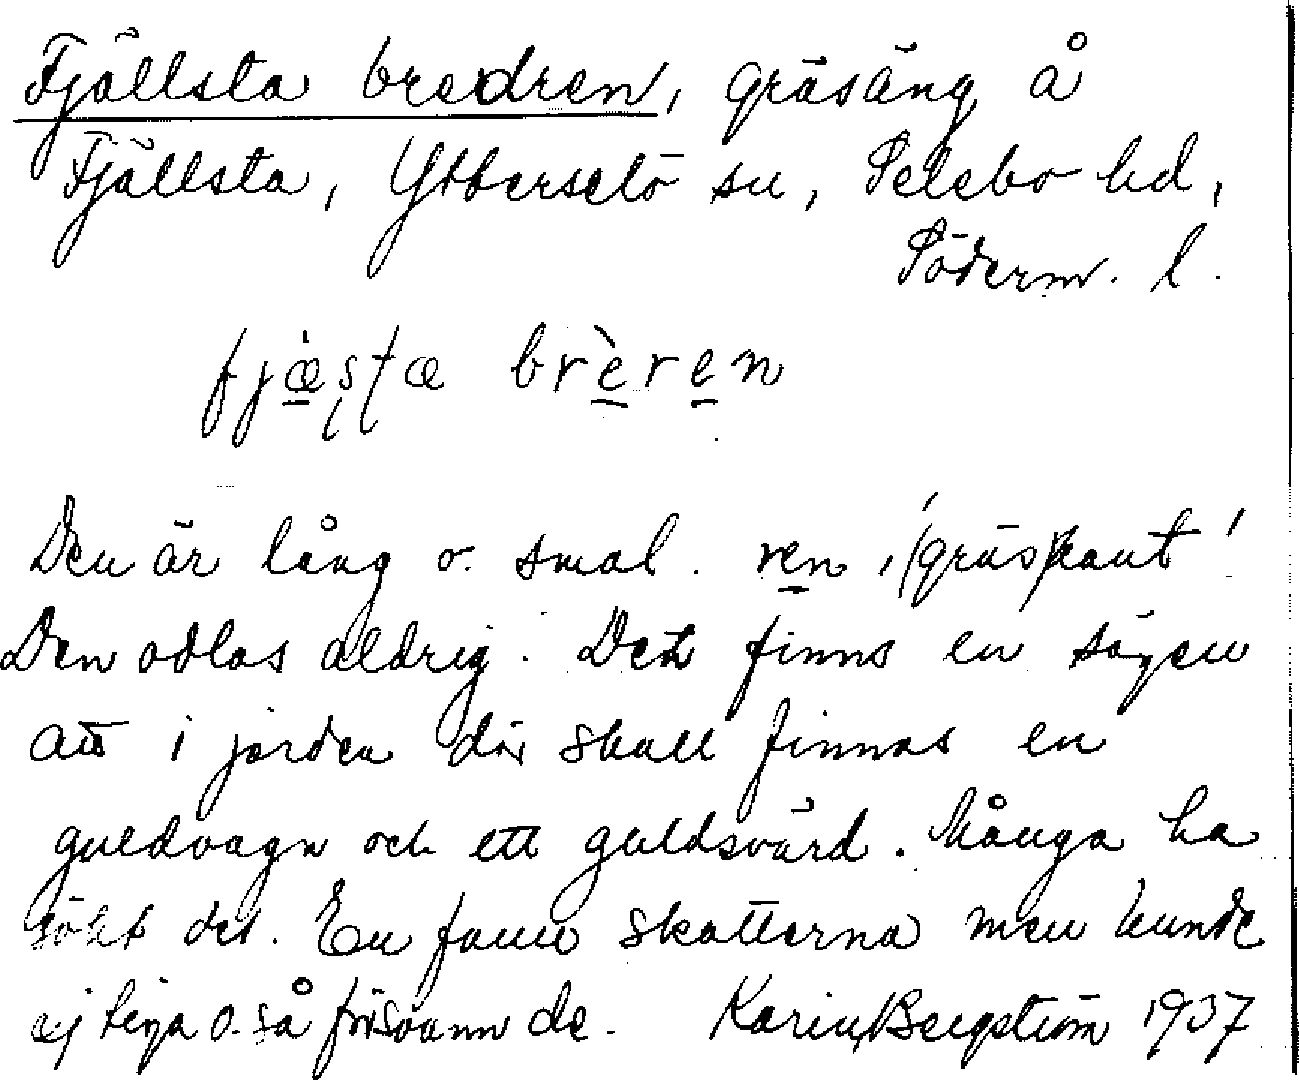 Fjällsta bredren, gräsäng å
Fjällsta, Ytterselö sn, Selebo hd,
Söderm. l.
fjæ̱sta brère̱n
Den är lång o. smal. ren, '(gräs)kant'
Den odlas aldrig. Det finns en sägen
att i jorden där skall finnas en
guldvagn och ett guldsvärd. Många ha
sökt det. En fann skatterna men kunde
ej tiga o. så försvann de. Karin Bergström 1937